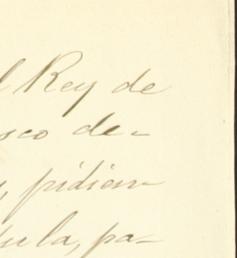 l Rey de
sco de-
, pidien-
ula, pa-